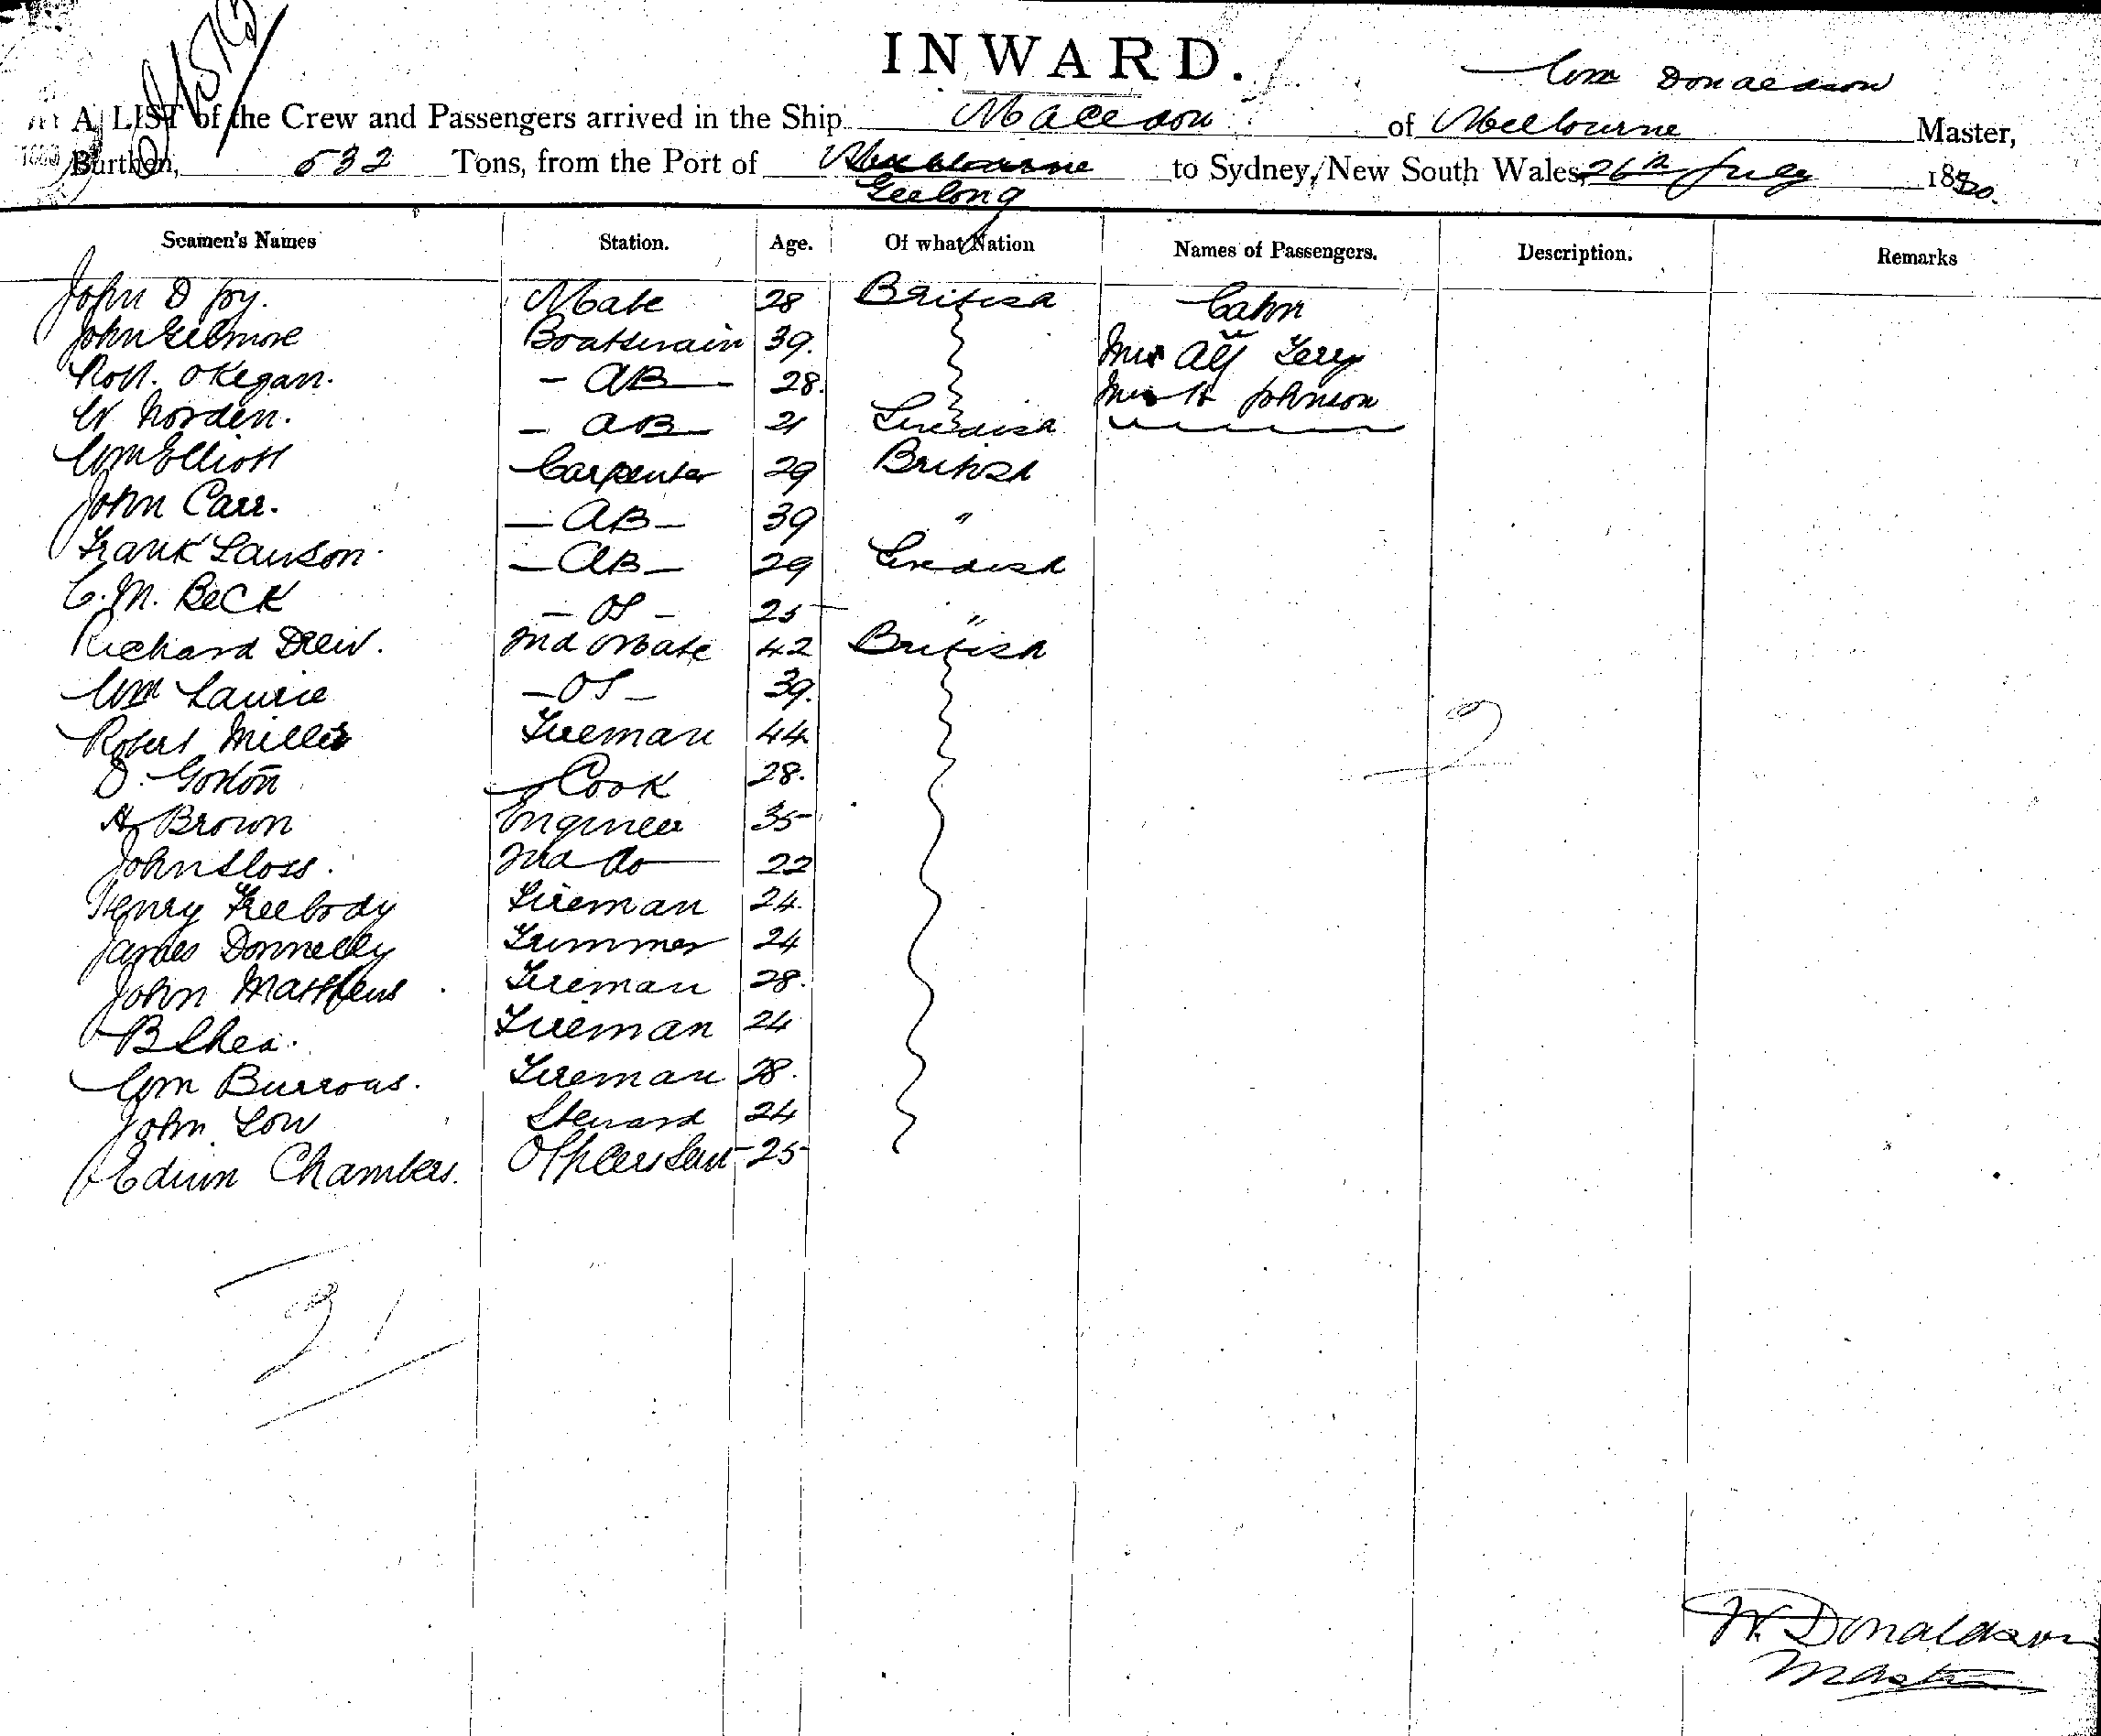 INWARD.
Wm Donaldson
A LIST of the Crew and Passengers arrived in the Ship Macedon of Melbourne Master,
Burthen, 532 Tons, from the Port of Melbourne to Sydney, New South Wales, 26th July 1880.
Geelong
Seamen's Names Station. Age. Of what Nation Names of Passengers. Description. Remarks
John D Joy. Mate 28 British Cabin
John Gilmore Boatswain 39. Mrs Alf Terry
Robt. OKegan. - AB - 28. H Johnson
W Norden. - AB - 21 Swedish
Wm Elliott Carpenter 29 British
John Carr. - AB - 39 "
Frank Lawson - AB - 29 Swedish
C. M. Beck - OS - 25 "
Richard Drew. 2nd Mate 42 British
Wm Laurie - OS - 39.
Robert Miller Fireman 44 2
D. Gordon Cook 28.
A Brown Engineer 35
John Sloss. 2nd do 22
Henry Freebody Fireman 24.
James Donnelly Trimmer 24
John Matthews Fireman 28.
B Shea. Fireman 24
Wm Burrows. Fireman 28.
John Low Steward 24
Edwin Chambers. Officers Servt 25
21
W. Donaldson
Master